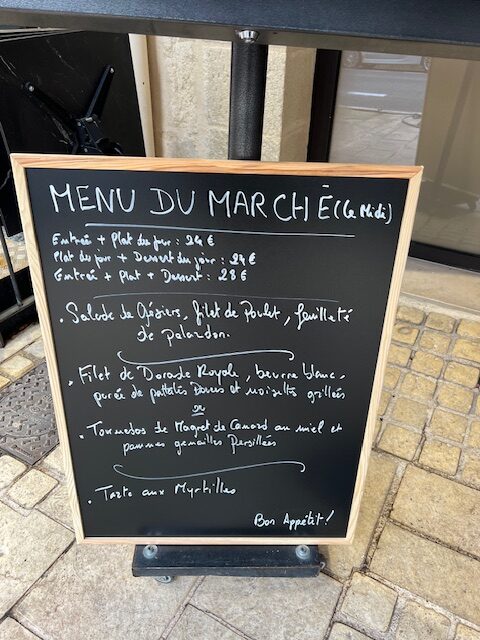 MENU DU MARCHÉ (Le Midi)
Entrée + Plat du jour : 24 €
Plat du jour + Dessert du jour : 24 €
Entrée + Plat + Dessert : 28 €
. Salade de Gésiers, filet de Poulet, feuilleté
de Palardon.
. Filet de Dorade Royale, beurre blanc,
purée de patates Douces et noisettes grillées
ou
. Tournedos de Magret de Canard au miel et
pommes grenailles Persillées
. Tarte aux Myrtilles
Bon Appétit !